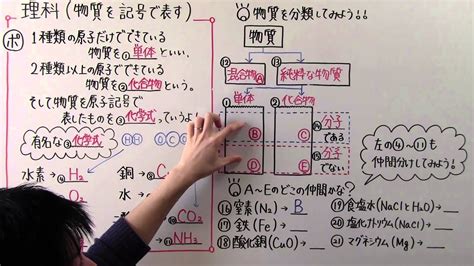 理科(物質を記号で表す)
ポ
1種類の原子だけでできている
物質を①単体といい、
2種類以上の原子でできている
物質を②化合物という。
そして物質を原子記号で
表したものを③化学式っていうよ
有名な③化学式
HH
水素→④H₂
銅→
CO₂
⑪NH₃
Q 物質を分類してみよう!!
物質
⑫
混合物Ⓐ
⑬
純粋な物質
①単体
②化合物
Ⓑ
Ⓒ
⑭分子
である
Ⓓ
Ⓔ
⑮分子
でない
左の④~⑪も
仲間分けしてみよう!
Q A~Eのどこの仲間かな?
⑯窒素(N₂)→ B
⑰鉄(Fe)→
⑱酸化銅(CuO)→
⑲食塩水(NaClとH₂O)→
⑳塩化ナトリウム(NaCl)→
㉑マグネシウム(Mg)→